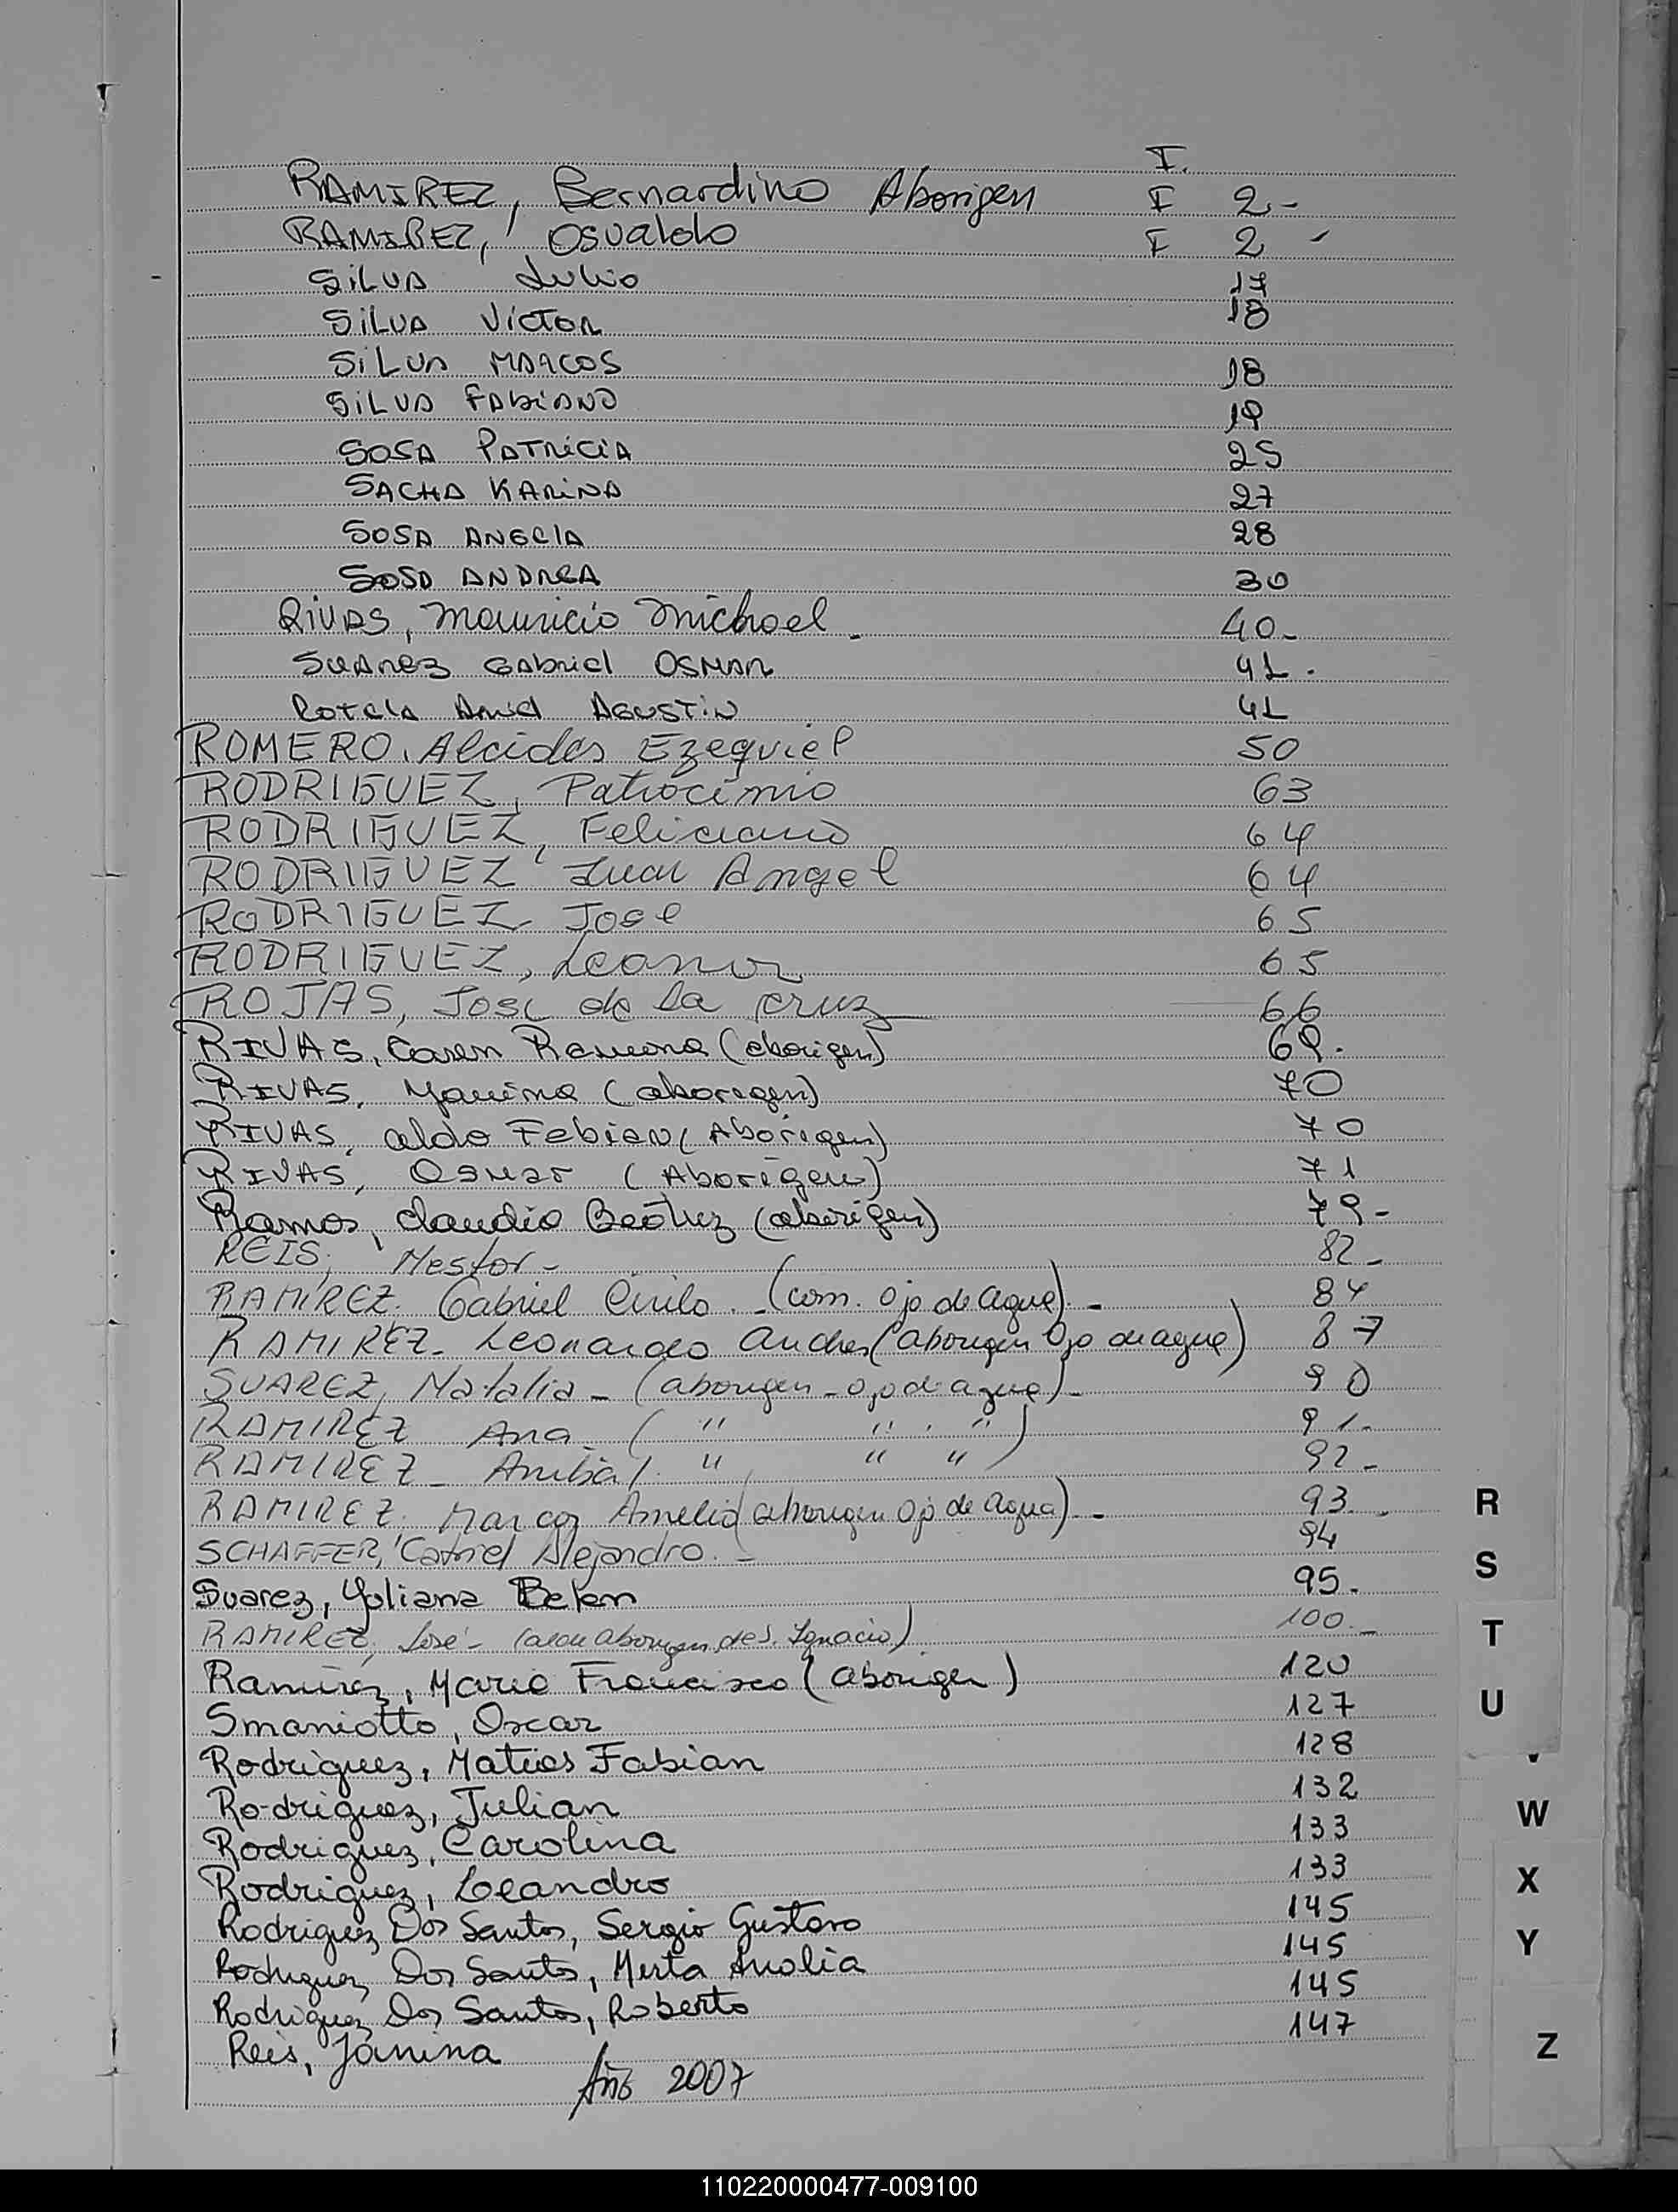 I.
RAMIREZ, Bernardino Aborigen I 2 -
RAMIREZ, Osvaldo I 2 -
SILVA Julio 17
SILVA VICTOR 18
SILVA MARCOS 18
SILVA FABIANO 19
SOSA PATRICIA 25
SACHA KARINA 27
SOSA ANGELA 28
SOSA ANDREA 30
RIVAS, Mauricio Michael - 40 -
SUAREZ GABRIEL OSMAR 41.
ROTELA AGUSTIN 41
ROMERO, Alcides Ezequiel 50
RODRIGUEZ, Patrocinio 63
RODRIGUEZ, Feliciano 64
RODRIGUEZ Juan Angel 64
RODRIGUEZ, Jose 65
RODRIGUEZ, Leonor 65
ROJAS, José de la Cruz 66
RIVAS, Caren Ramona (aborigen) 69.
RIVAS, Yanina (aborigen) 70
RIVAS, aldo Fabian (Aborigen) 70
RIVAS, Osmar (Aborigen) 71
Ramos, Claudia Beatriz (aborigen) 79 -
REIS, Nestor - 82 -
RAMIREZ. Gabriel Cirilo. - (com. Ojo de Agua). - 84
RAMIREZ. Leonardo Andres (aborigen Ojo de agua) 87
SUAREZ, Natalia - (aborigen - ojo de agua) - 90
RAMIREZ Ana. ( " " . " ) 91 -
RAMIREZ - Anibal. " " " ) 92 -
RAMIREZ, Marcos Amelio (aborigen Ojo de Agua) - 93 -
SCHAFFER, Catriel Alejandro. - 94
Suarez, Yuliana Belen 95.
RAMIREZ, José - (aborigen de S. Ignacio) 100 -
Ramirez, Mario Francisco (aborigen) 120
Smaniotto, Oscar 127
Rodriguez, Matias Fabian 128
Rodriguez, Julian 132
Rodriguez, Carolina 133
Rodriguez, Leandro 133
Rodriguez Dos Santos, Sergio Gustavo 145
Rodriguez Dos Santos, Mirta Analia 145
Rodriguez Dos Santos, Roberto 145
Reis, Janina 147
Año 2007
R
S
T
U
W
X
Y
Z
110220000477-009100